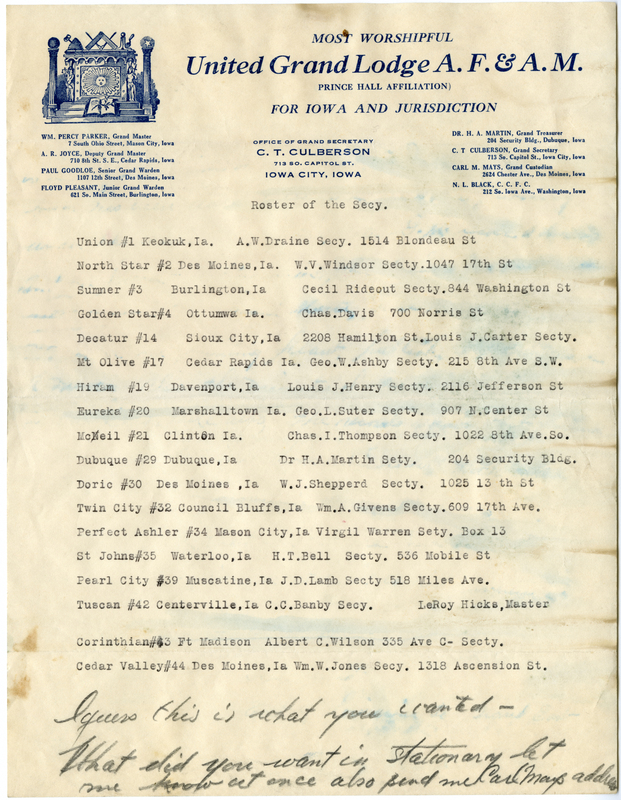 MOST WORSHIPFUL
United Grand Lodge A. F. & A. M.
PRINCE HALL AFFILIATION)
FOR IOWA AND JURISDICTION
WM. PERCY PARKER, Grand Master
7 South Ohio Street, Mason City, Iowa
A. R. JOYCE, Deputy Grand Master
710 8th St. S. E., Cedar Rapids, Iowa
PAUL GOODLOE, Senior Grand Warden
1107 12th Street, Des Moines, Iowa
FLOYD PLEASANT, Junior Grand Warden
621 So. Main Street, Burlington, Iowa
OFFICE OF GRAND SECRETARY
C. T. CULBERSON
713 SO. CAPITOL ST.
IOWA CITY, IOWA
DR. H. A. MARTIN, Grand Treasurer
204 Security Bldg., Dubuque, Iowa
C. T CULBERSON, Grand Secretary
713 So. Capitol St., Iowa City, Iowa
CARL M. MAYS, Grand Custodian
2624 Chester Ave., Des Moines, Iowa
N. L. BLACK, C. C. F. C.
212 So. Iowa Ave., Washington, Iowa
Roster of the Secy.
Union #1 Keokuk,Ia. A.W.Draine Secy. 1514 Blondeau St
North Star #2 Des Moines,Ia. W.V.Windsor Secty.1047 17th St
Sumner #3 Burlington,Ia Cecil Rideout Secty.844 Washington St
Golden Star#4 Ottumwa Ia. Chas.Davis 700 Norris St
Decatur #14 Sioux City,Ia 2208 Hamilton St.Louis J.Carter Secty.
Mt Olive #17 Cedar Rapids Ia. Geo.W.Ashby Secty. 215 8th Ave S.W.
Hiram #19 Davenport,Ia Louis J.Henry Secty. 2116 Jefferson St
Eureka #20 Marshalltown Ia. Geo.L.Suter Secty. 907 N.Center St
McNeil #21 Clinton Ia. Chas.I.Thompson Secty. 1022 8th Ave.So.
Dubuque #29 Dubuque,Ia Dr H.A.Martin Sety. 204 Security Bldg.
Doric #30 Des Moines ,Ia W.J.Shepperd Secty. 1025 13 th St
Twin City #32 Council Bluffs,Ia Wm.A.Givens Secty.609 17th Ave.
Perfect Ashler #34 Mason City,Ia Virgil Warren Sety. Box 13
St Johns#35 Waterloo,Ia H.T.Bell Secty. 536 Mobile St
Pearl City #39 Muscatine,Ia J.D.Lamb Secty 518 Miles Ave.
Tuscan #42 Centerville,Ia C.C.Banby Secy. LeRoy Hicks,Master
Corinthian#43 Ft Madison Albert C.Wilson 335 Ave C- Secty.
Cedar Valley#44 Des Moines,Ia Wm.W.Jones Secy. 1318 Ascension St.
I guess this is what you wanted -
What did you want in stationary let
me know at once also send me Carl Mays address